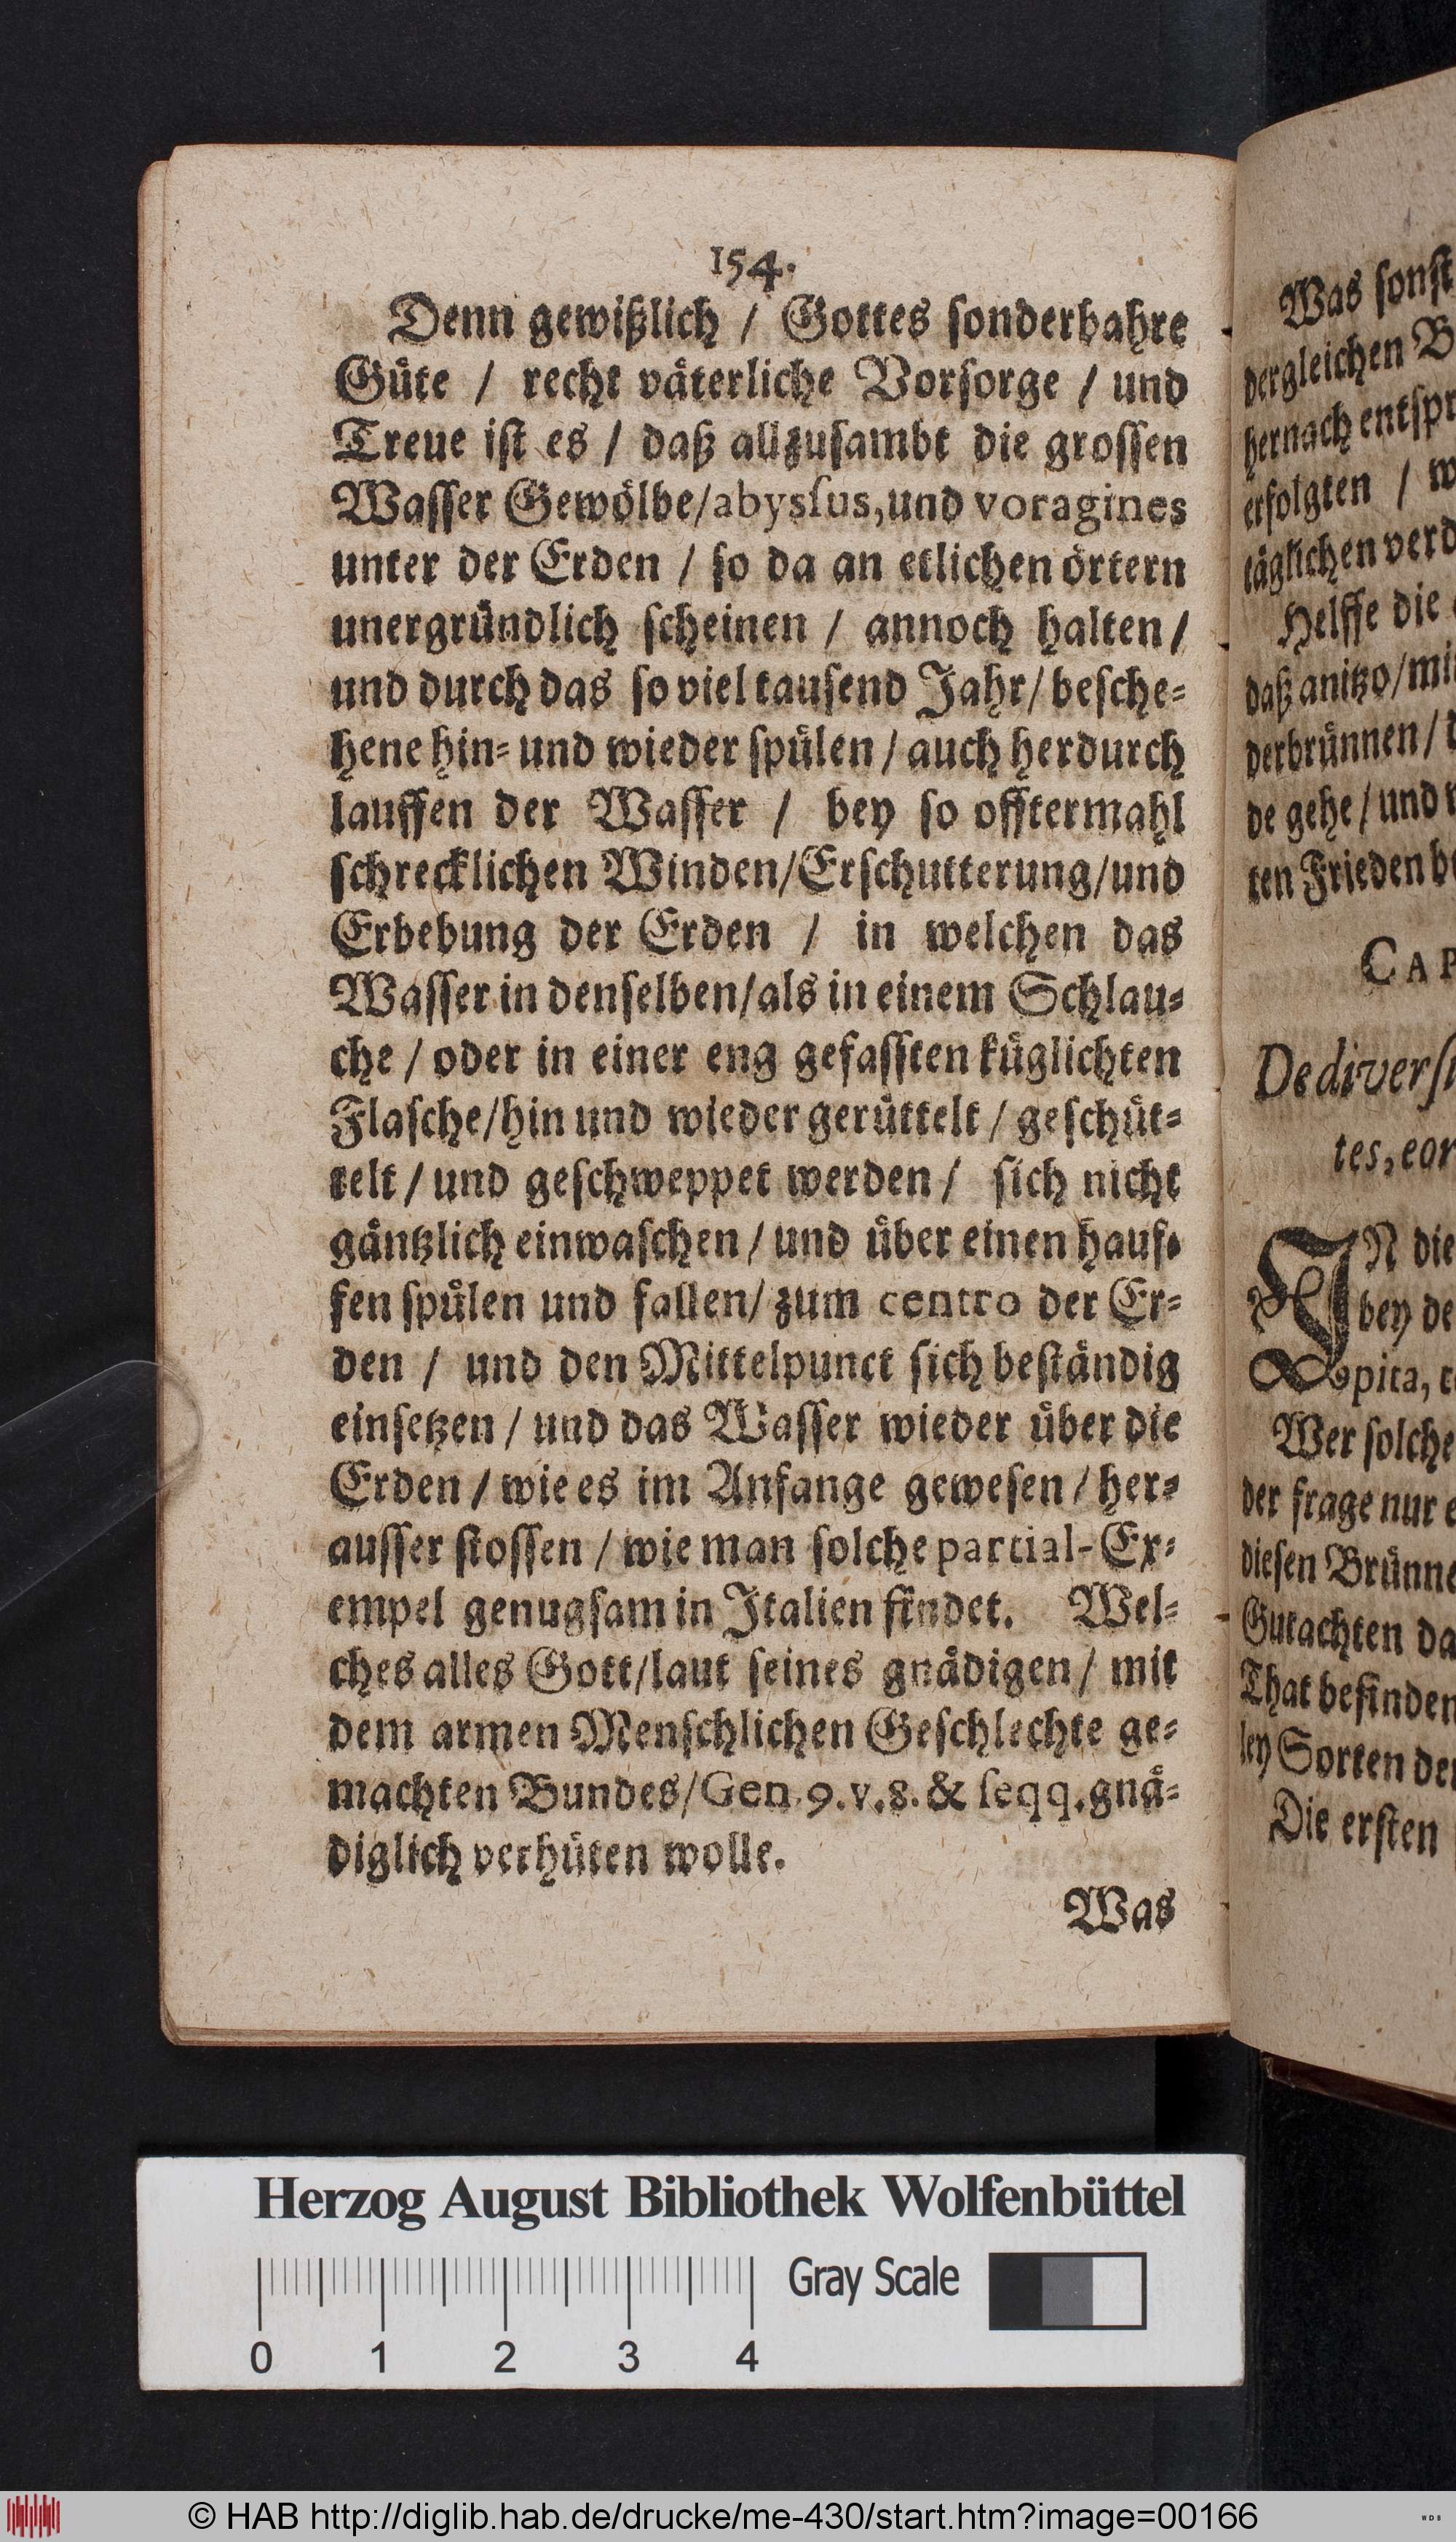 154.
Denn gewißlich / Gottes sonderbahre
Güte / recht väterliche Vorsorge / und
Treue ist es / daß allzusambt die grossen
Wasser Gewölbe/abyssus,und voragines
unter der Erden / so da an etlichen örtern
unergründlich scheinen / annoch halten/
und durch das so viel tausend Jahr/ besche-
hene hin- und wieder spülen / auch herdurch
lauffen der Wasser / bey so offtermahl
schrecklichen Winden/Erschutterung/und
Erbebung der Erden / in welchen das
Wasser in denselben/als in einem Schlau-
che / oder in einer eng gefassten küglichten
Flasche/hin und wieder gerüttelt / geschüt-
telt / und geschweppet werden / sich nicht
gäntzlich einwaschen / und über einen hauf-
fen spülen und fallen/ zum centro der Er-
den / und den Mittelpunct sich beständig
einsetzen / und das Wasser wieder über die
Erden / wie es im Anfange gewesen / her-
ausser stossen / wie man solche partial-Ex-
empel genugsam in Italien findet. Wel-
ches alles Gott/laut seines gnädigen / mit
dem armen Menschlichen Geschlechte ge-
machten Bundes/Gen. 9. v. 8. & seqq. gnä-
diglich verhüten wolle.
Was
Was sonst
dergleichen B
hernach entspr
erfolgten / w
täglichen verd
Helffe die
daß anitzo/mit
derbrünnen/
de gehe / und
ten Frieden
CAP
De divers
tes, eor
IN die
bey de
pita,
Wer solche
der frage nur e
diesen Brünne
Gutachten da
That befinden
ley Sorten der
Die ersten
Herzog August Bibliothek Wolfenbüttel
Gray Scale
0 1 2 3 4
© HAB http://diglib.hab.de/drucke/me-430/start.htm?image=00166
WDB